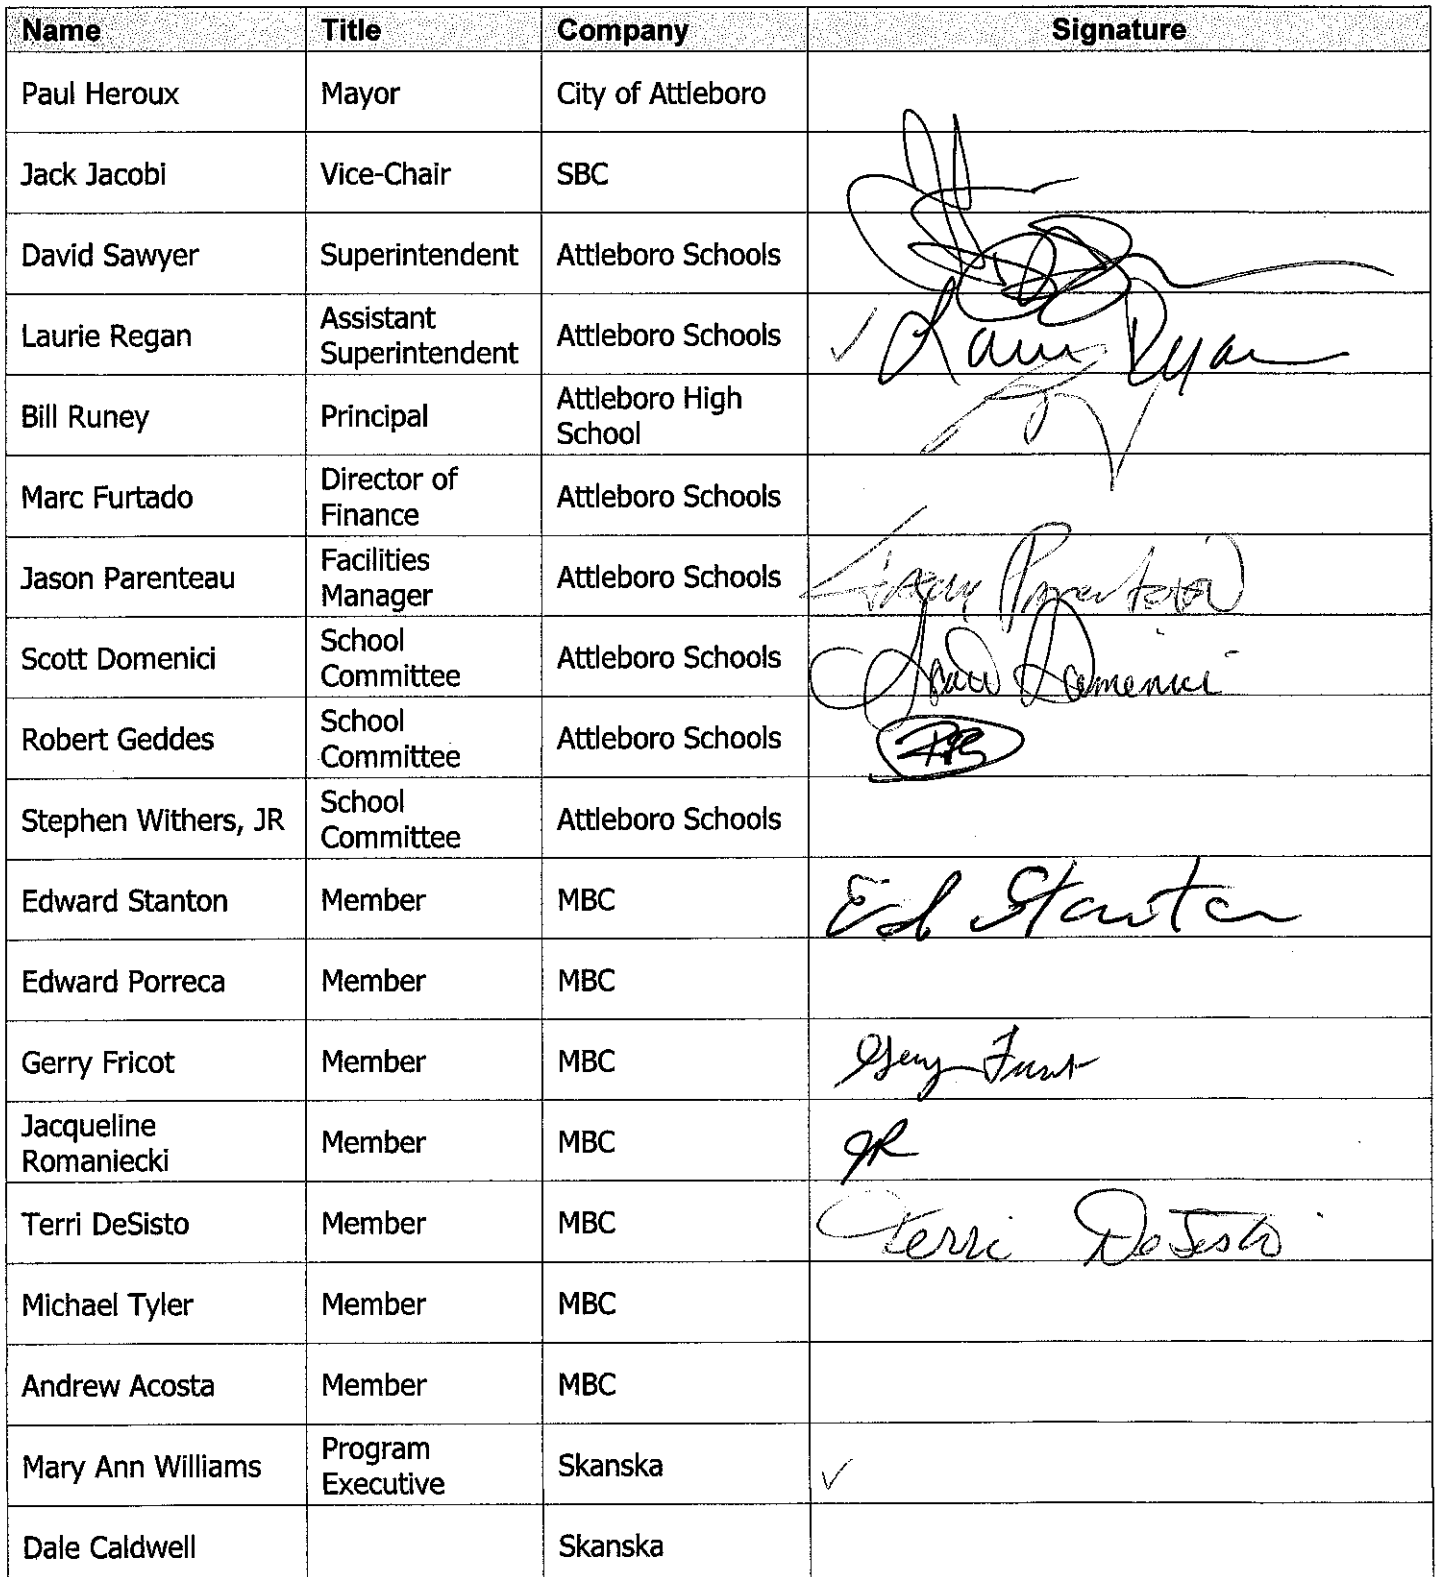 Name Title Company Signature
Paul Heroux Mayor City of Attleboro
Jack Jacobi Vice-Chair SBC
David Sawyer Superintendent Attleboro Schools
Laurie Regan Assistant Superintendent Attleboro Schools ✓ Laurie Regan
Bill Runey Principal Attleboro High School
Marc Furtado Director of Finance Attleboro Schools
Jason Parenteau Facilities Manager Attleboro Schools Jason Parenteau
Scott Domenici School Committee Attleboro Schools Scott Domenici
Robert Geddes School Committee Attleboro Schools
Stephen Withers, JR School Committee Attleboro Schools
Edward Stanton Member MBC Ed Stanton
Edward Porreca Member MBC
Gerry Fricot Member MBC Gerry Fricot
Jacqueline Romaniecki Member MBC JR
Terri DeSisto Member MBC Terri DeSisto
Michael Tyler Member MBC
Andrew Acosta Member MBC
Mary Ann Williams Program Executive Skanska ✓
Dale Caldwell Skanska